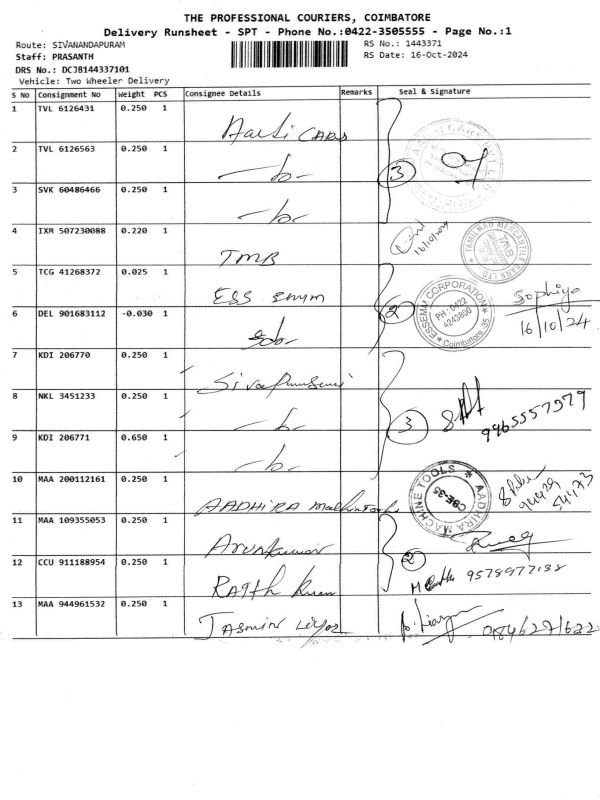 THE PROFESSIONAL COURIERS, COIMBATORE
Delivery Runsheet - SPT - Phone No.:0422-3505555 - Page No.:1
Route: SIVANANDAPURAM
RS No.: 1443371
Staff: PRASANTH
RS Date: 16-Oct-2024
DRS No.: DCJB144337101
Vehicle: Two Wheeler Delivery
S No Consignment No Weight PCS Consignee Details Remarks Seal & Signature
1 TVL 6126431 0.250 1 CARS
2 TVL 6126563 0.250 1
3
3 SVK 60486466 0.250 1
4 IXM 507230088 0.220 1 TMB
16/10/2024
TAMILNAD MERCANTILE BANK LTD
TMB
5 TCG 41268372 0.025 1 ESS
2
ESSEMM CORPORATION
PH : 0422
4243800
Coimbatore-35
Sophiya
16/10/24
6 DEL 901683112 -0.030 1
7 KDI 206770 0.250 1
8 NKL 3451233 0.250 1
3
9965557579
9 KDI 206771 0.650 1
10 MAA 200112161 0.250 1 AADHIRA Machine Tools
AADHIRA MACHINE TOOLS
CBE-35
11 MAA 109355053 0.250 1 Arunkumar
12 CCU 911188954 0.250 1
2
9578977138
13 MAA 944961532 0.250 1 Jasmin